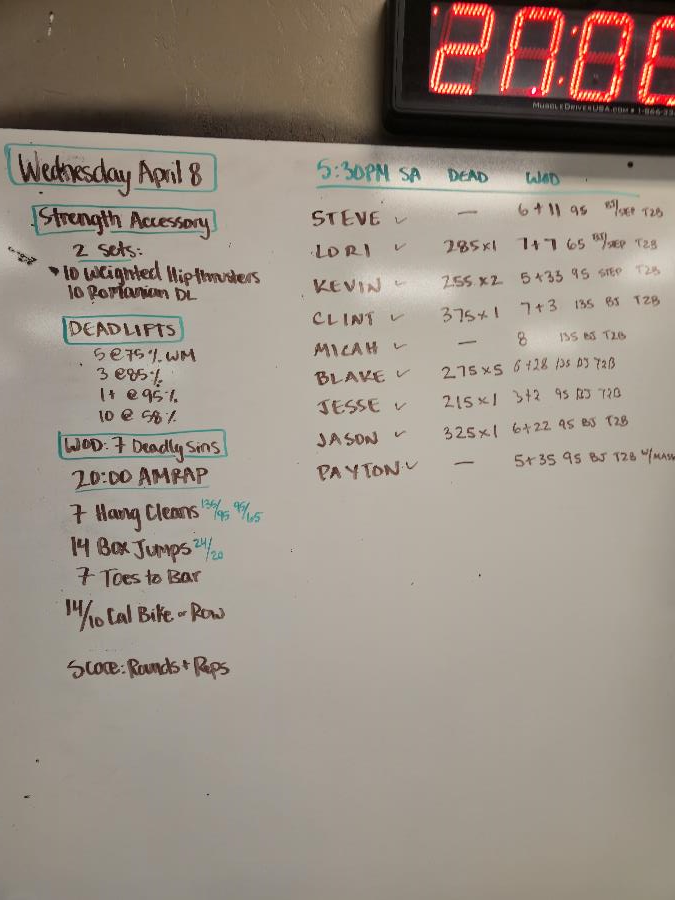 MuscleDriverUSA.com
Wednesday April 8
Strength Accessory
2 Sets:
10 Weighted Hipthrusters
10 Romanian DL
DEADLIFTS
5 @ 75% WM
3 @ 85%
1+ @ 95%
10 @ 58%
WOD: 7 Deadly Sins
20:00 AMRAP
7 Hang Cleans 135/95 95/65
14 Box Jumps 24/20
7 Toes to Bar
14/10 Cal Bike or Row
Score: Rounds + Reps
5:30PM SA DEAD WOD
STEVE ✓ — 6+11 95 BJ/STEP T2B
LORI ✓ 285x1 7+7 65 BJ/STEP T2B
KEVIN ✓ 255x2 5+33 95 STEP T2B
CLINT ✓ 375x1 7+3 135 BJ T2B
MICAH ✓ — 8 135 BJ T2B
BLAKE ✓ 275x5 6+28 135 BJ T2B
JESSE ✓ 215x1 3+2 95 BJ T2B
JASON ✓ 325x1 6+22 95 BJ T2B
PAYTON ✓ — 5+35 95 BJ T2B